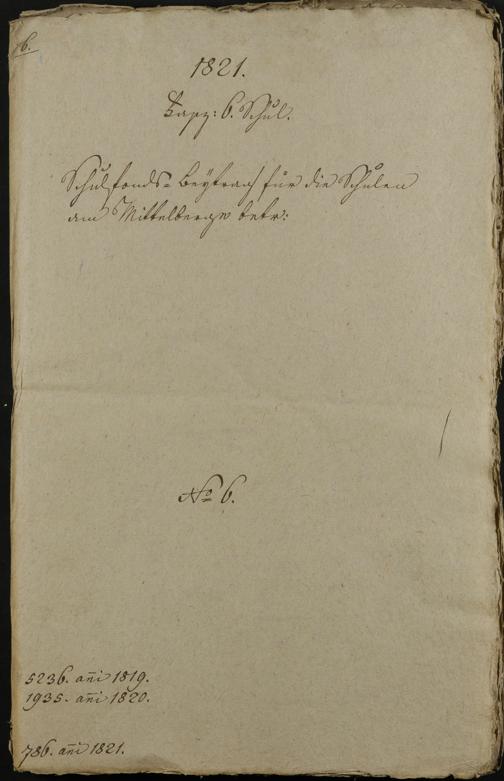 6.
1821.
Fasz: 6. Schul.
Schulfonds=Beÿtrag für die Schulen
am Mittelberge betr:
No 6.
5236. ani 1819.
1935. ani 1820.
786. ani 1821.